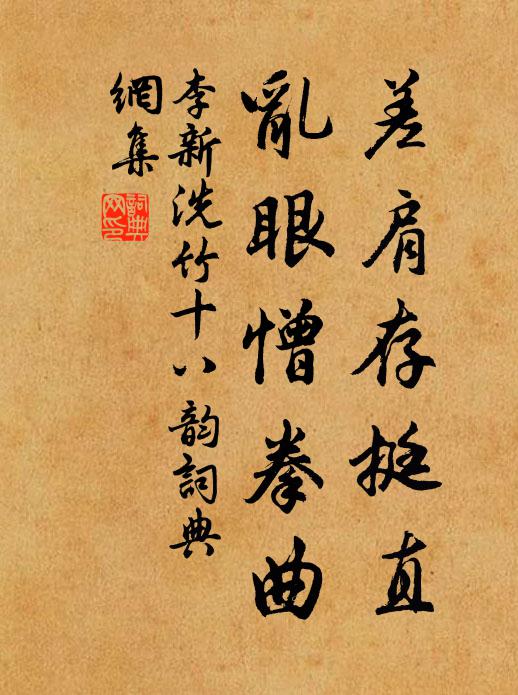 差肩存挺直
亂眼憎拳曲
李新洗竹十八韵詞典
網集
詞典網印